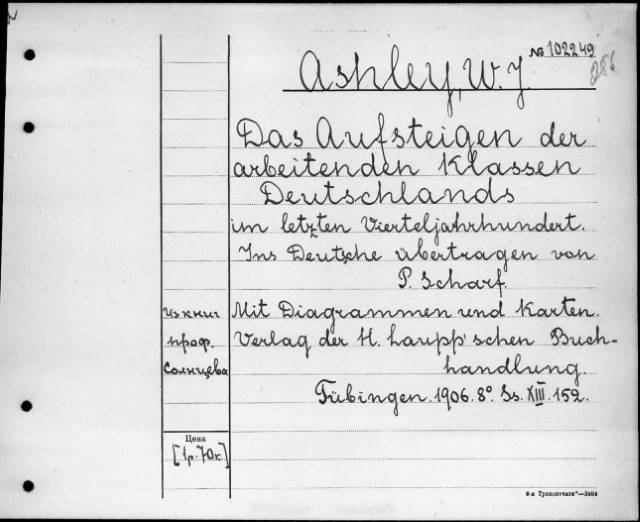 № 102249
Ashley, W. J.
286
Das Aufsteigen der
arbeitenden Klassen
Deutschlands
im letzten Vierteljahrhundert.
Ins Deutsche übertragen von
P. Scharf.
Из книг
проф.
Солнцева
Mit Diagrammen und Karten.
Verlag der H. Laupp'schen Buch-
handlung.
Tübingen. 1906. 8°. Ss. XIII. 152.
Цена
[1р. 70к.]